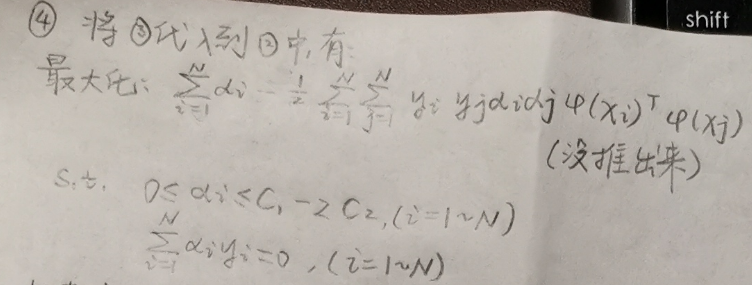 shift
④ 将③代入到②中,有:
最大化: $\sum_{i=1}^{N} α_i - \frac{1}{2} \sum_{i=1}^{N} \sum_{j=1}^{N} y_i y_j α_i α_j φ(x_i)^T φ(x_j)$
(没推出来)
s.t. $0 ≤ α_i ≤ C_1 - 2C_2, (i=1~N)$
$\sum_{i=1}^{N} α_i y_i = 0, (i=1~N)$